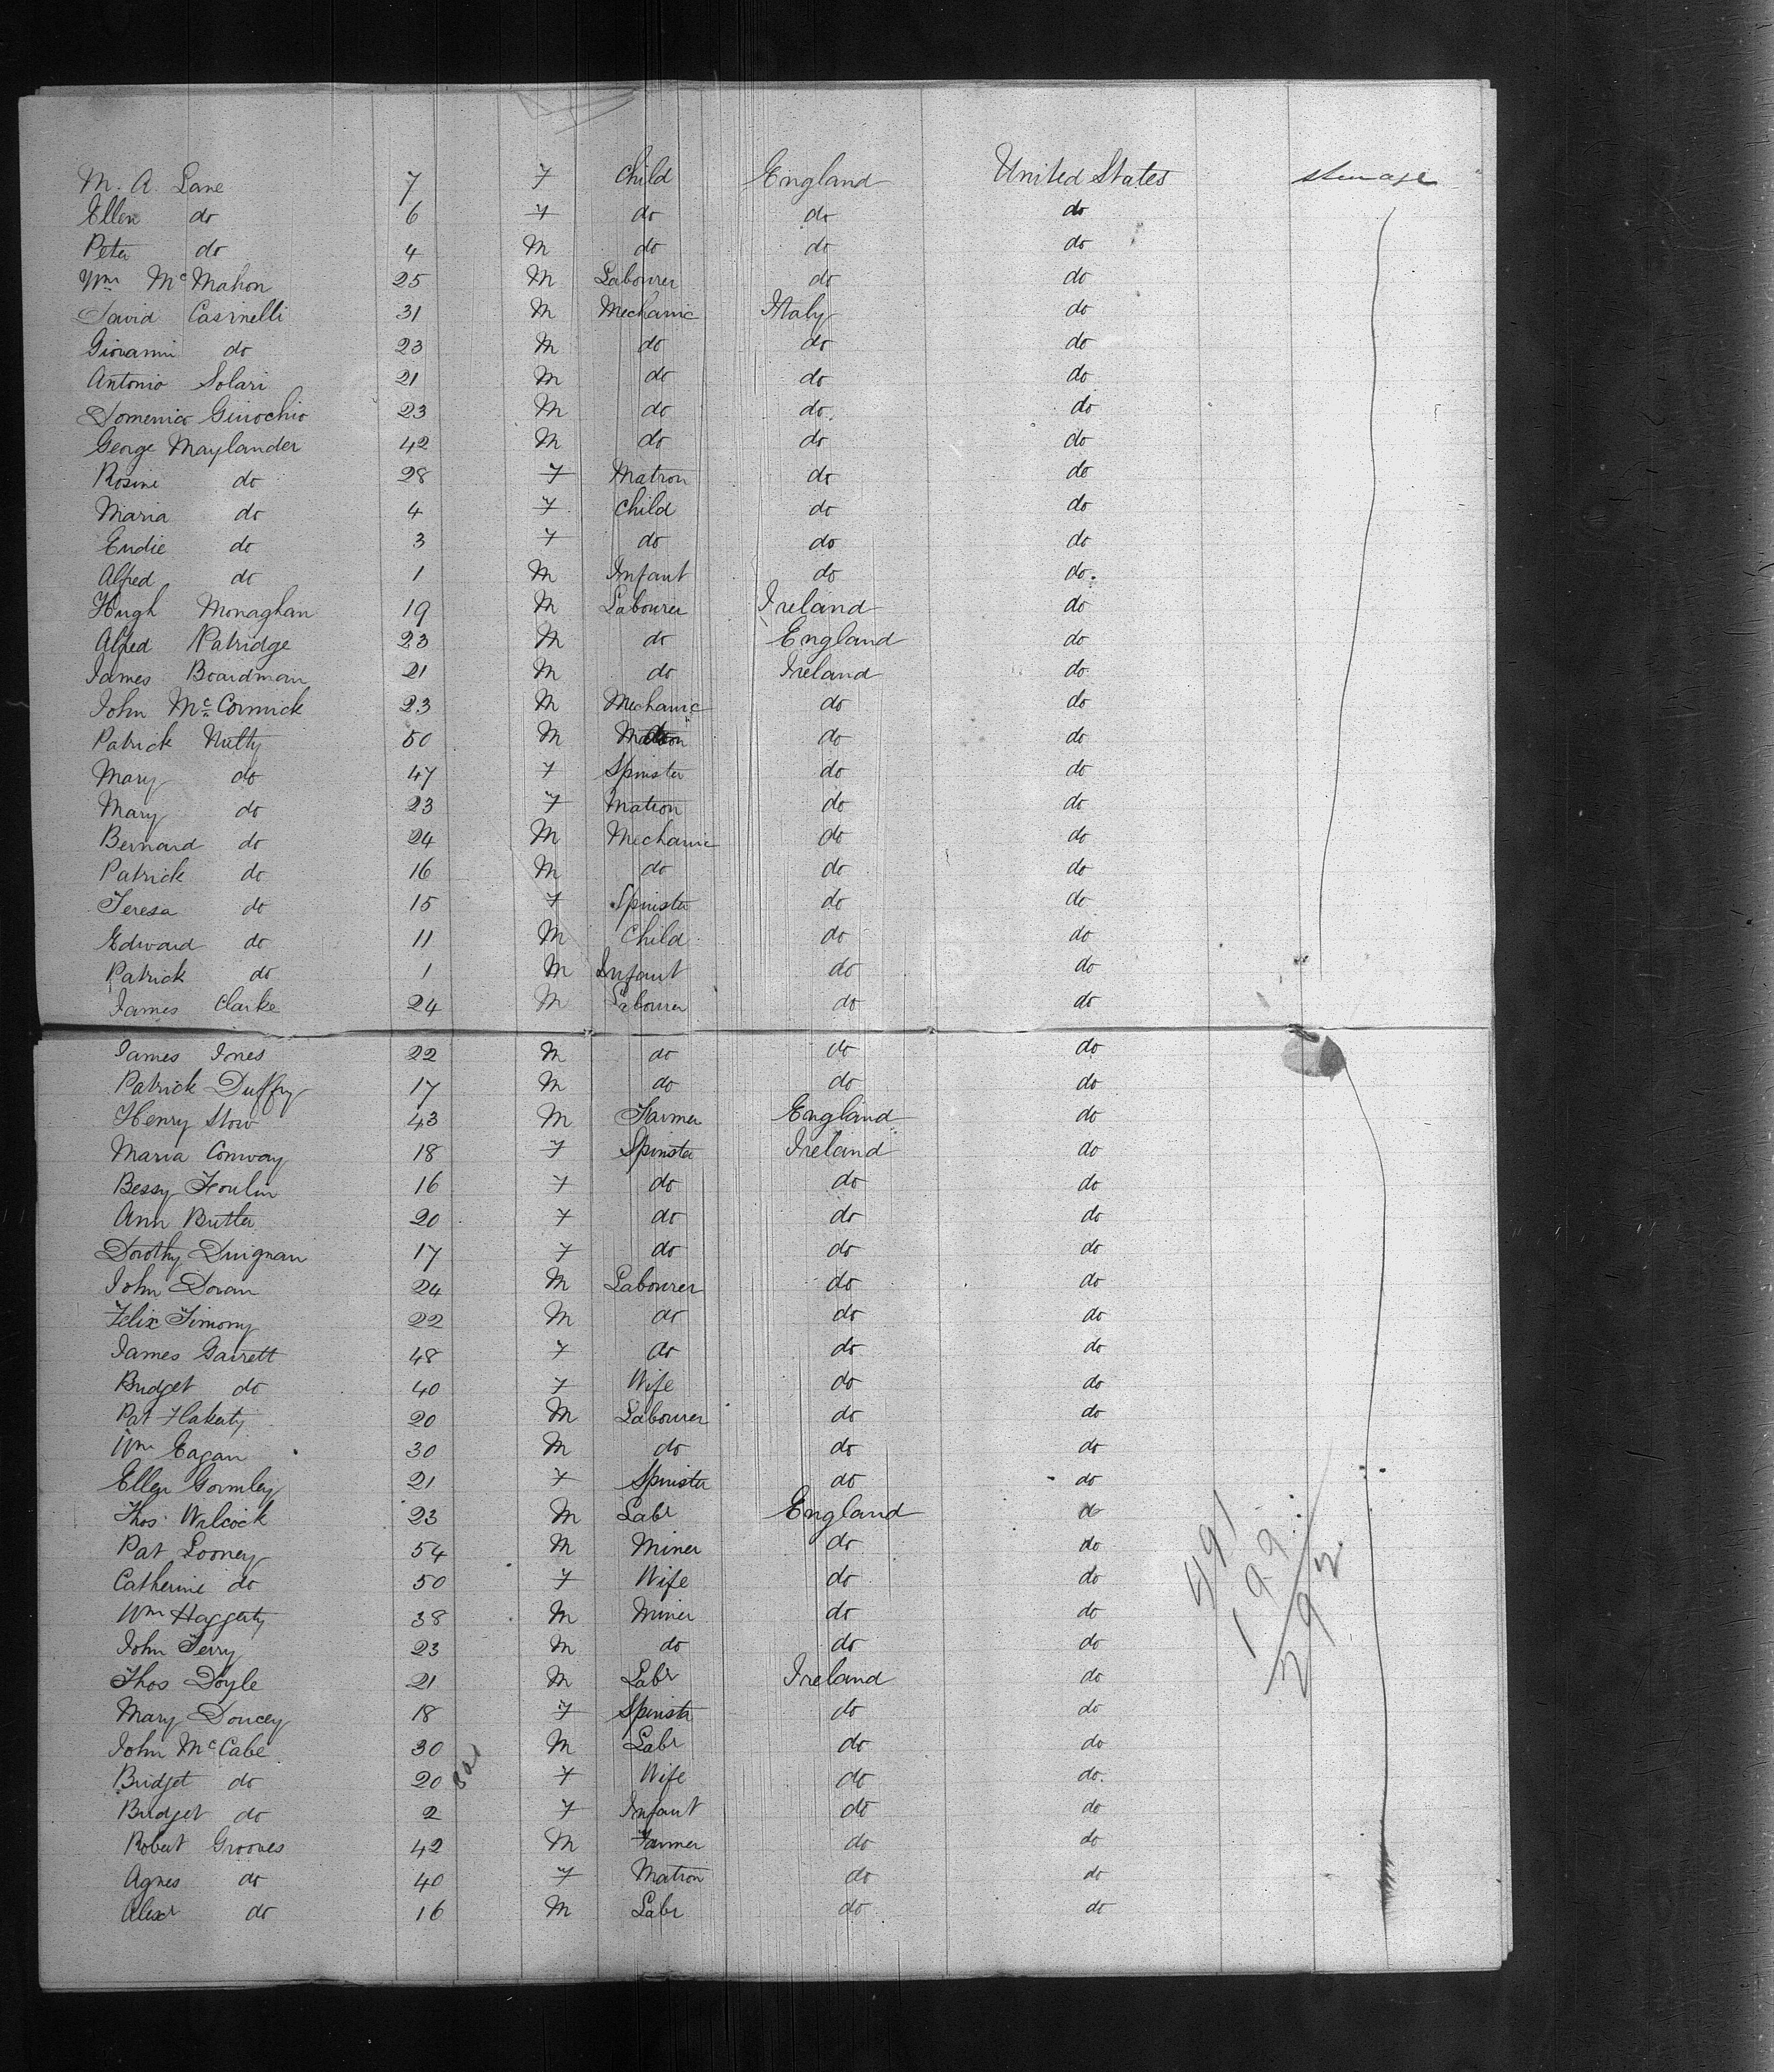 M. A. Lane 7 F Child England United States Steerage
Ellen do 6 F do do do
Peter do 4 M do do do
Wm McMahon 25 M Labourer do do
David Casinelli 31 M Mechanic Italy do
Giovanni do 23 M do do do
Antonio Solari 21 M do do do
Domenico Ginochio 23 M do do do
George Maylander 42 M do do do
Rosine do 28 F Matron do do
Maria do 4 F Child do do
do 3 F do do do
Alfred do 1 M Infant do do
Hugh Monaghan 19 M Labourer Ireland do
Alfred Patridge 23 M do England do
James Boardman 21 M do Ireland do
John McCormick 23 M Mechanic do do
Patrick Nulty 50 M do do
Mary do 47 F Spinster do do
Mary do 23 F Matron do do
Bernard do 24 M Mechanic do do
Patrick do 16 M do do do
Teresa do 15 F Spinster do do
Edward do 11 M Child do do
Patrick do 1 M Infant do do
James Clarke 24 M Labourer do do
James Jones 22 M do do do
Patrick Duffy 17 M do do do
Henry Stow 43 M Farmer England do
Maria Conway 18 F Spinster Ireland do
Bessy 16 F do do do
Ann Butler 20 F do do do
Dorothy Duignan 17 F do do do
John Doran 24 M Labourer do do
Felix Timony 22 M do do do
James Garrett 48 F do do do
Bridget do 40 F Wife do do
Pat Flaherty 20 M Labourer do do
Wm Eagan 30 M do do do
Ellen Gormley 21 F Spinster do do
Thos. Wilcock 23 M Labr England do
Pat Looney 54 M Miner do do
Catherine do 50 F Wife do do
Wm Haggerty 38 M Miner do do
John Terry 23 M do do do
Thos Doyle 21 M Labr Ireland do
Mary Doucey 18 F Spinstr do do
John McCabe 30 M Labr do do
Bridget do 20 F Wife do do
Bridget do 2 F Infant do do
Robert Grooves 42 M Farmer do do
Agnes do 40 F Matron do do
Alexr do 16 M Labr do do
491
199
292